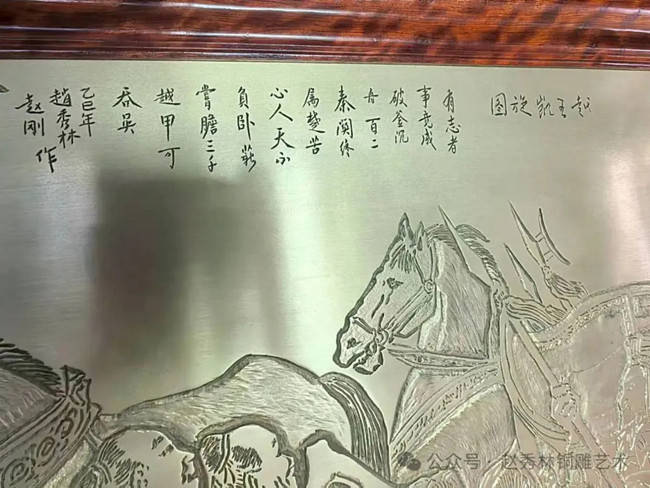 越王凯旋图
有志者
事竟成
破釜沉
舟百二
秦关终
属楚苦
心人天不
负卧薪
尝胆三千
越甲可
吞吴
乙巳年
趙秀林
赵刚作
公众号·赵秀林铜雕艺术